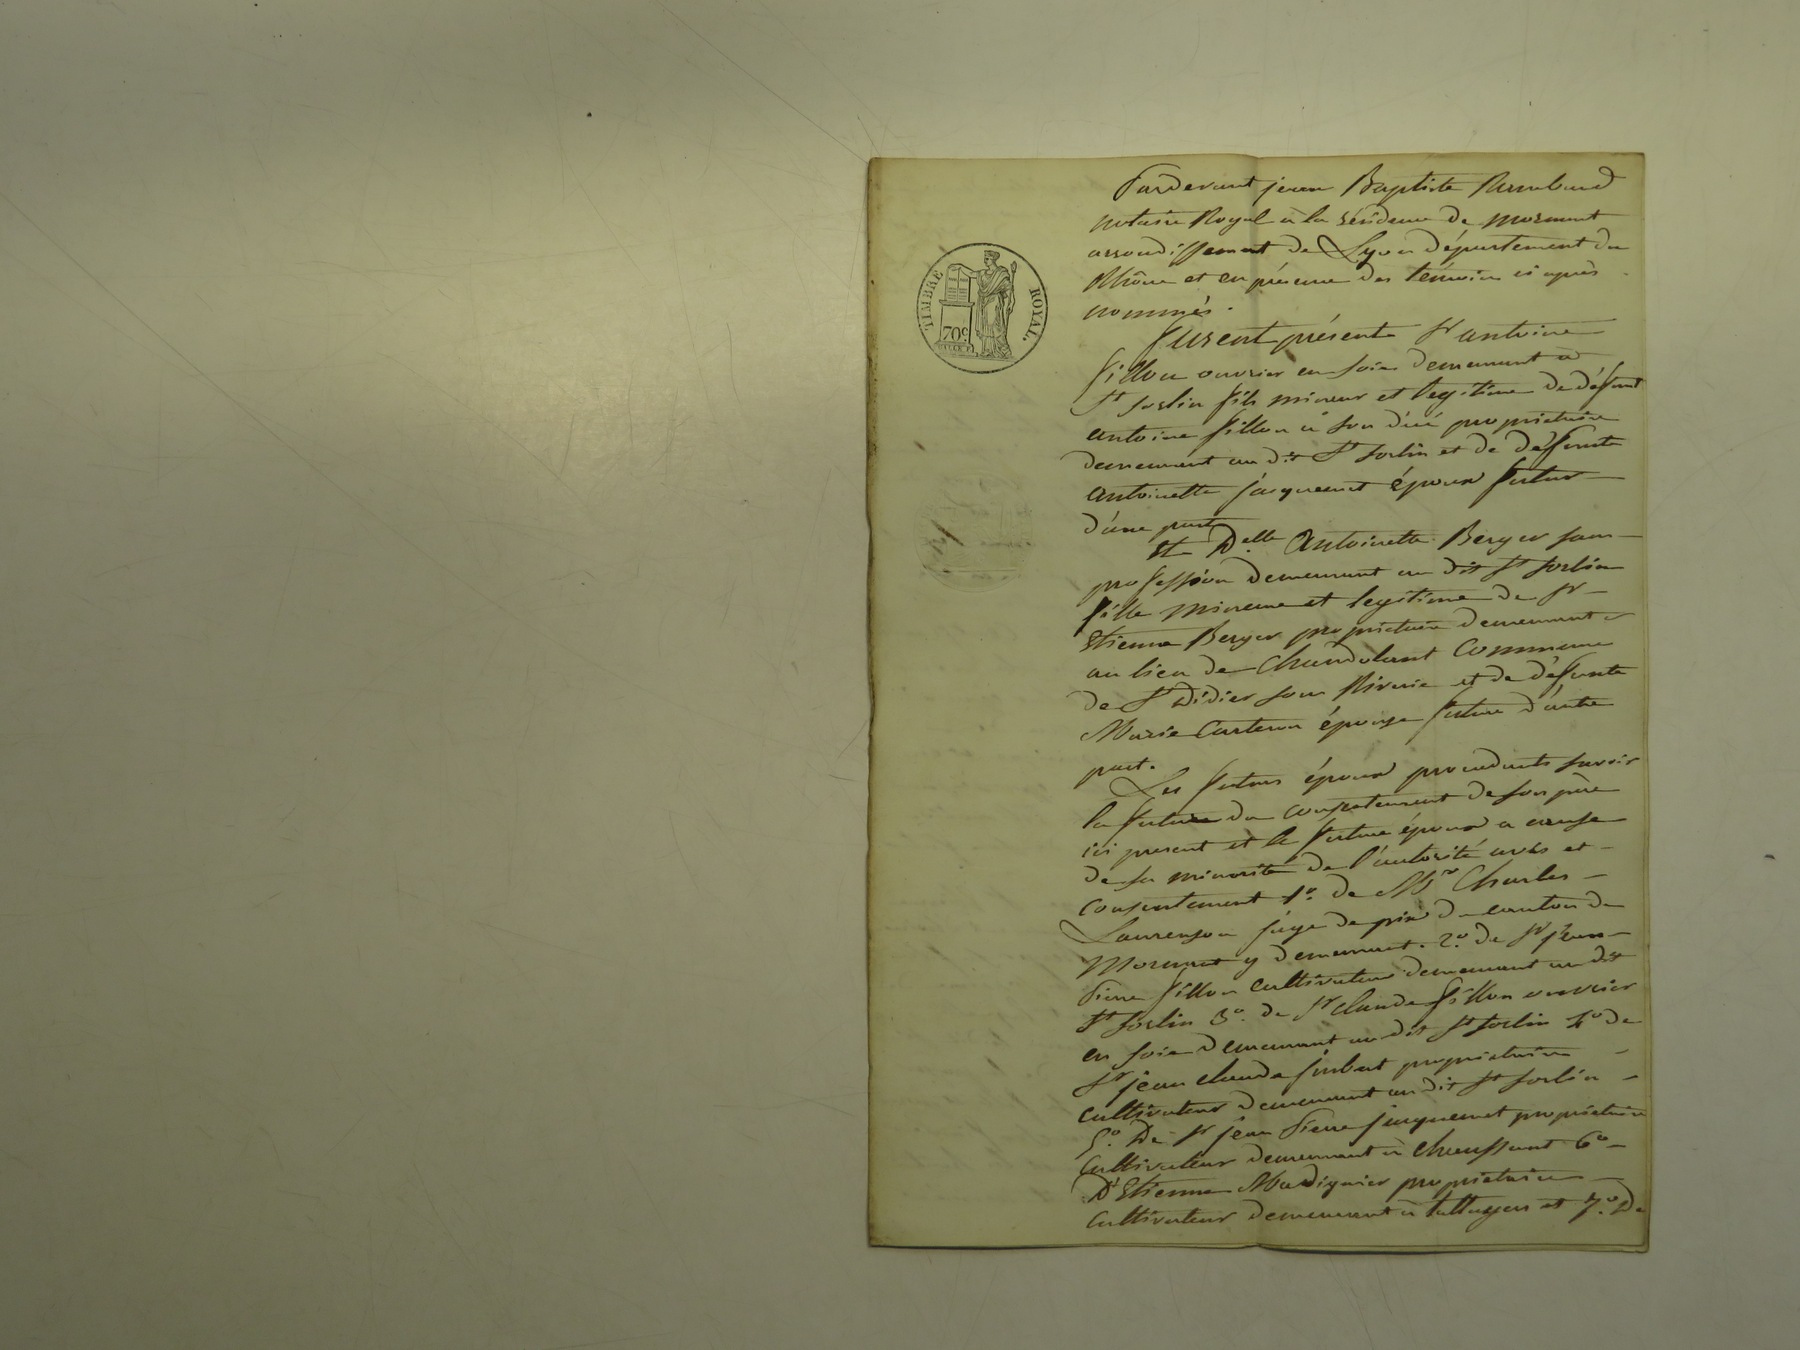 TIMBRE ROYAL.
70c
Pardevant jean Baptiste Rambaud
notaire Royal à la résidence de mornant
arrondissement de Lyon département du
Rhône et en présence des témoins ci après
nommés.
furent présents Sr antoine
fillon ouvrier en soie demeurant à
St Sorlin fils mineur et legitime de défunt
antoine fillon à son décé propriétaire
demeurant au dit St Sorlin et de défunte
antoinette jacquemet époux futur
d'une part
Et Delle Antoinette Berger sans
profession demeurant au dit St Sorlin
fille mineure et legitime de Sr
Etienne Berger propriétaire demeurant
au lieu de Commune
de St Didier sous Riverie et de défunte
Marie Carteron épouse future d'autre
part.
Les futurs époux procedants savoir
la future du consentement de son père
ici present et le future époux a cause
de sa minorité de l'autorité avis et
consentement 1o. de Mr Charles
Laurenson juge de paix du canton de
Mornant y demeurant. 2o. de Sr jean
Pierre fillon cultivateur demeurant au dit
St Sorlin 3o. de Sr claude fillon ouvrier
en soie demeurant au dit St Sorlin 4o de
Sr jean claude propriétaire
cultivateur demeurant au dit St Sorlin
5o. De Sr jean Pierre jacquemet propriétaire
Cultivateur demeurant à Chaussant 6o
D'Etienne propriétaire
Cultivateur demeurant à et 7o. De